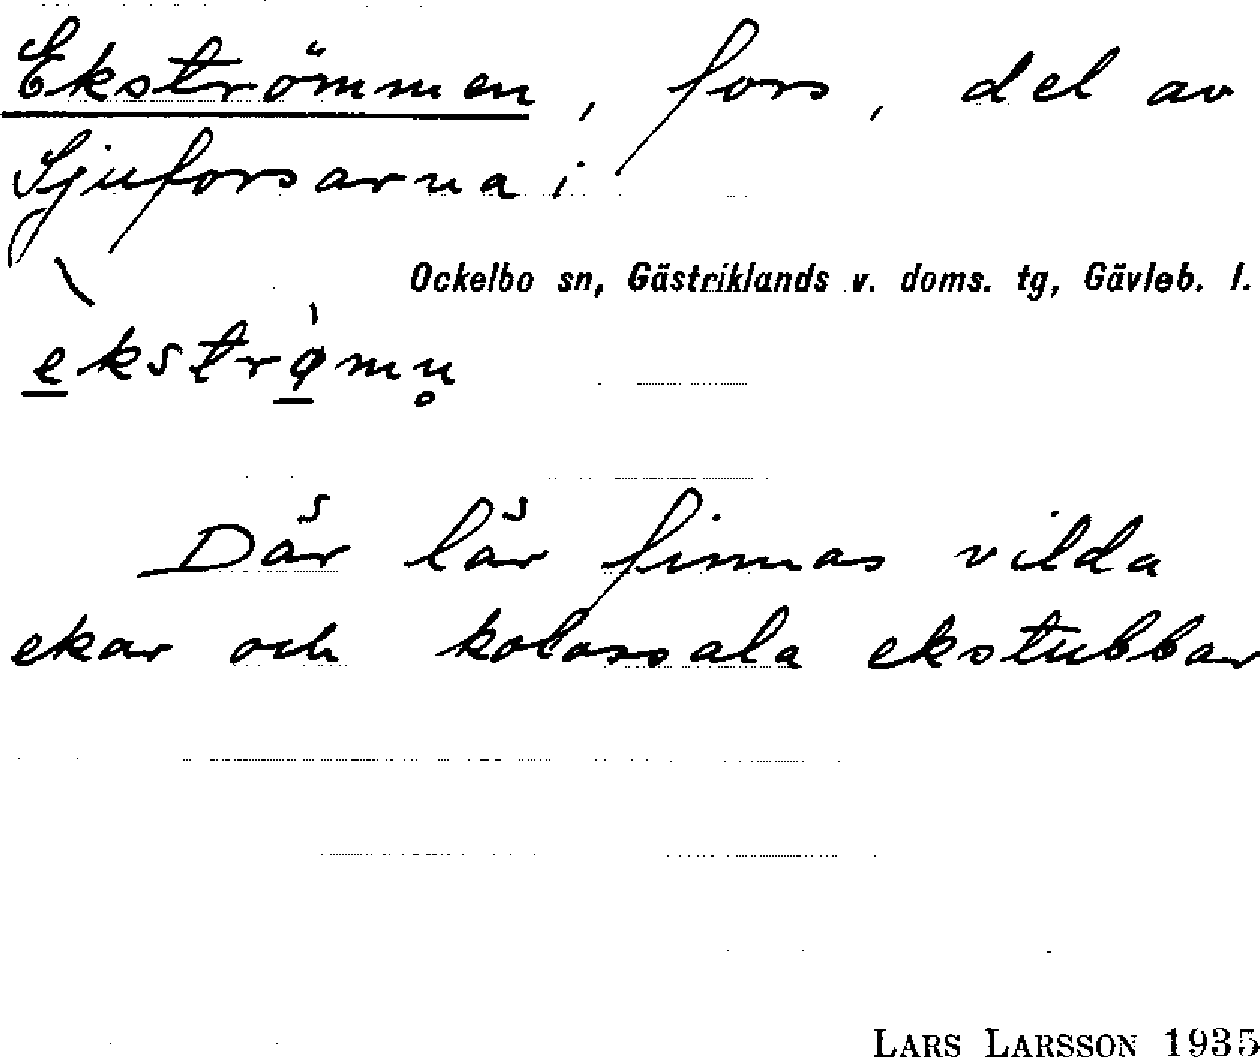 Ekströmmen, fors, del av
Sjuforsarna i
Ockelbo sn, Gästriklands v. doms. tg, Gävleb. l.
Där lär finnas vilda
ekar och kolossala ekstubbar
LARS LARSSON 1935